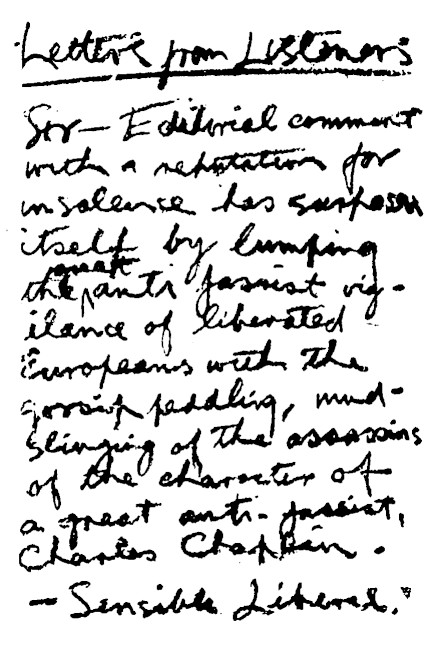 Letters from Listeners
Sir — Editorial comment
with a reputation for
insolence has surpassed
itself by lumping
the great anti fascist vig-
ilance of liberated
Europeans with the
gossip peddling, mud-
slinging of the assassins
of the character of
a great anti-fascist,
Charles Chaplin.
— Sensible Liberal."